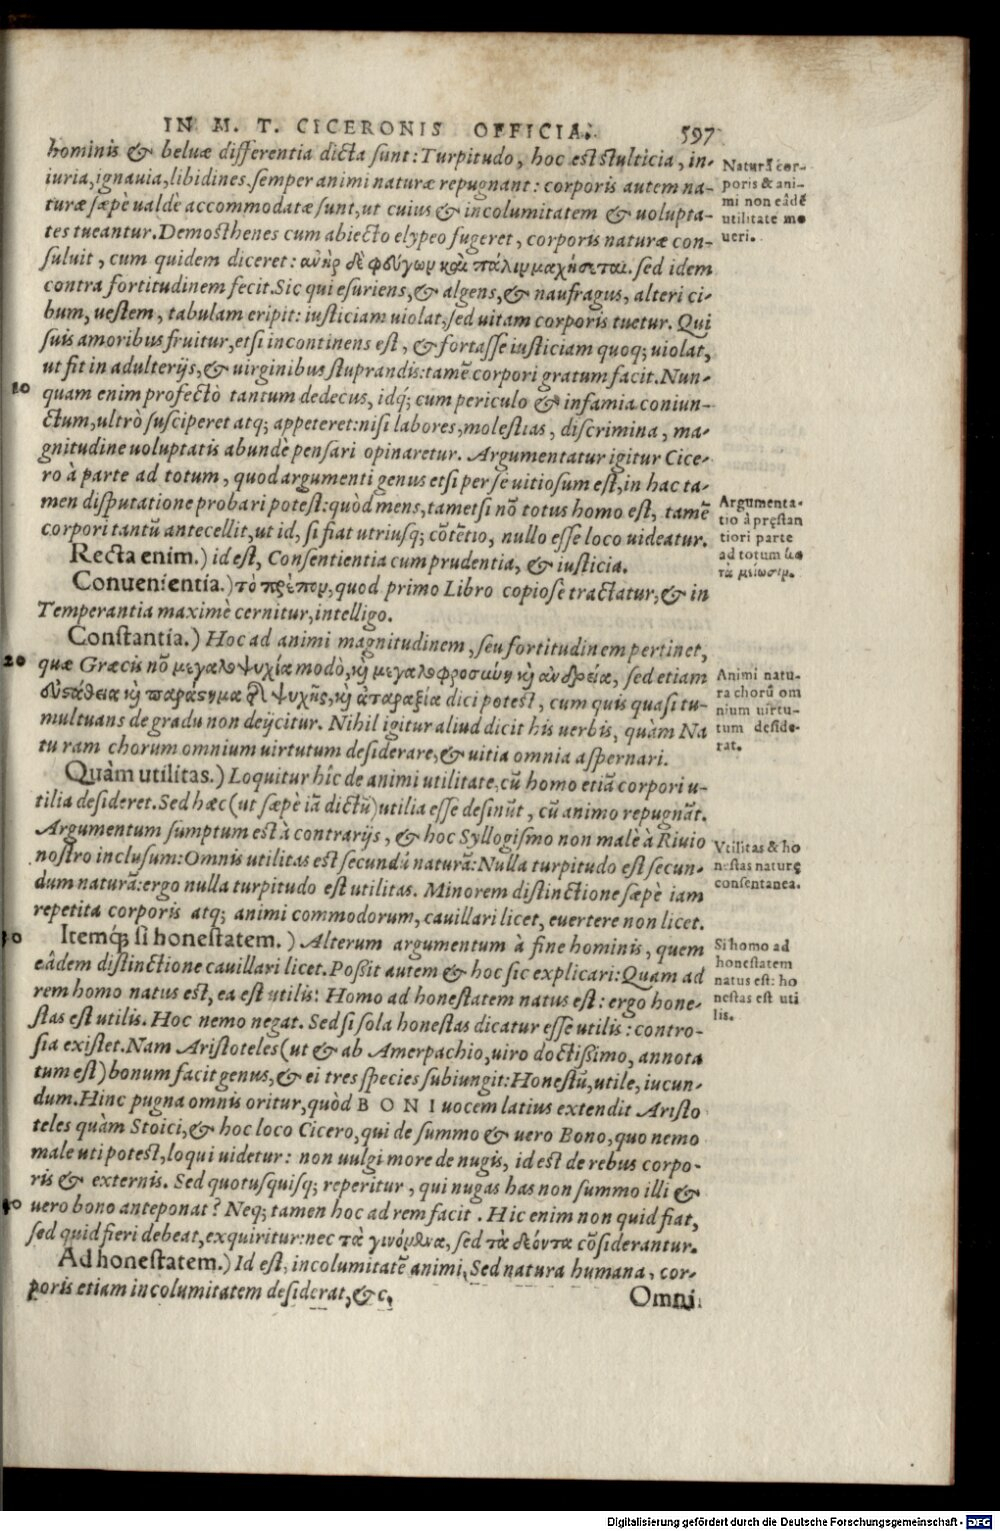 IN M. T. CICERONIS OFFICIA. 597
hominis & beluæ differentia dicta sunt: Turpitudo, hoc est stulticia, in-
iuria, ignauia, libidines. semper animi naturæ repugnant: corporis autem na-
turæ sæpè ualdè accommodatæ sunt, ut cuius & incolumitatem & uolupta-
tes tueantur. Demosthenes cum abiecto clypeo fugeret, corporis naturæ con-
suluit, cum quidem diceret: ἀνὴρ δὲ φεύγων καὶ πάλιν μαχήσεται. sed idem
contra fortitudinem fecit. Sic qui esuriens, & algens, & naufragus, alteri ci-
bum, uestem, tabulam eripit: iusticiam uiolat, sed uitam corporis tuetur. Qui
suis amoribus fruitur, etsi incontinens est, & fortasse iusticiam quoq; uiolat,
ut fit in adulterijs, & uirginibus stuprandis: tamē corpori gratum facit. Nun-
quam enim profectò tantum dedecus, idq́; cum periculo & infamia coniun-
ctum, ultrò susciperet atq; appeteret: nisi labores, molestias, discrimina, ma-
gnitudine uoluptatis abundè pensari opinaretur. Argumentatur igitur Cice-
ro à parte ad totum, quod argumenti genus etsi per se uitiosum est, in hac ta-
men disputatione probari potest: quòd mens, tametsi nō totus homo est, tamē
corpori tantū antecellit, ut id, si fiat utriusq; cōtētio, nullo esse loco uideatur.
Recta enim.) id est, Consentientia cum prudentia, & iusticia.
Conuenientia.) τὸ πρέπον, quod primo Libro copiose tractatur, & in
Temperantia maximè cernitur, intelligo.
Constantia.) Hoc ad animi magnitudinem, seu fortitudinem pertinet,
quæ Græcis nō μεγαλοψυχία modò, καὶ μεγαλοφροσώνη καὶ ἀνδρεία, sed etiam
εὐπάθεια καὶ παράστημα τῆς ψυχῆς, καὶ ἀταραξία dici potest, cum quis quasi tu-
multuans de gradu non deijcitur. Nihil igitur aliud dicit his uerbis, quàm Na
tu ram chorum omnium uirtutum desiderare, & uitia omnia aspernari.
Quàm utilitas.) Loquitur hîc de animi utilitate, cū homo etiā corpori u-
tilia desideret. Sed hæc (ut sæpè iā dictū) utilia esse desinūt, cū animo repugnāt.
Argumentum sumptum est à contrarijs, & hoc Syllogismo non malè à Riuio
nostro inclusum: Omnis utilitas est secundū naturā: Nulla turpitudo est secun-
dum naturā: ergo nulla turpitudo est utilitas. Minorem distinctione sæpè iam
repetita corporis atq; animi commodorum, cauillari licet, euertere non licet.
Itemq́; si honestatem.) Alterum argumentum à fine hominis, quem
eâdem distinctione cauillari licet. Poßit autem & hoc sic explicari: Quam ad
rem homo natus est, ea est utilis: Homo ad honestatem natus est: ergo hone-
stas est utilis. Hoc nemo negat. Sed si sola honestas dicatur esse utilis: contro-
sia existet. Nam Aristoteles (ut & ab Amerpachio, uiro doctißimo, annota
tum est) bonum facit genus, & ei tres species subiungit: Honestū, utile, iucun-
dum. Hinc pugna omnis oritur, quòd BONI uocem latius extendit Aristo
teles quàm Stoici, & hoc loco Cicero, qui de summo & uero Bono, quo nemo
male uti potest, loqui uidetur: non uulgi more de nugis, id est de rebus corpo-
ris & externis. Sed quotusquisq; reperitur, qui nugas has non summo illi &
uero bono anteponat? Neq; tamen hoc ad rem facit. Hic enim non quid fiat,
sed quid fieri debeat, exquiritur: nec τὰ γινόμενα, sed τὰ δέοντα cōsiderantur.
Ad honestatem.) Id est, incolumitatē animi, Sed natura humana, cor-
poris etiam incolumitatem desiderat, & c.
Omni
Naturā cor-
poris & ani-
mi non eâdē
utilitate mo
ueri.
Argumenta-
tio à pręstan
tiori parte
ad totum κα
τὰ μείωσιν.
Animi natu-
ra chorū om
nium uirtu-
tum deside-
rat.
Vtilitas & ho
nestas naturę
consentanea.
Si homo ad
honestatem
natus est: ho
nestas est uti
lis.
10
20
30
40
Digitalisierung gefördert durch die Deutsche Forschungsgemeinschaft - DFG